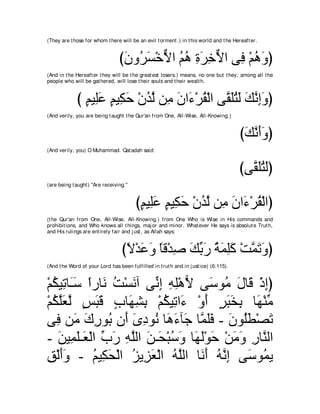 (They are those for whom there will be an evil torment.) in this world and the Hereafter.
(وَهُمْ فِى الاٌّخِرَةِ هُمُ الاٌّخْسَرُونَ)
(And in the Hereafter they will be the greatest losers.) means, no one but they, among all the people who will be gathered, will lose their souls and their wealth.
(وَإِنَّكَ لَتُلَقَّى الْقُرْءَانَ مِن لَّدُنْ حَكِيمٍ عَلِيمٍ )
(And verily, you are being taught the Qur'an from One, All-Wise, All-Knowing.)
(وَأَنَّكَ)
(And verily, you) O Muhammad. Qatadah said:
(لَتُلَقَّى)
(are being taught) "Are receiving."
(الْقُرْءَانَ مِن لَّدُنْ حَكِيمٍ عَلِيمٍ)
(the Qur'an from One, All-Wise, All-Knowing.) from One Who is Wise in His commands and prohibitions, and Who knows all things, major and minor. Whatever He says is absolute Truth, and His rulings are entirely fair and just, as Allah says:
(وَتَمَّتْ كَلِمَةُ رَبِّكَ صِدْقاً وَعَدْلاً)
(And the Word of your Lord has been fulfilled in truth and in justice) (6:115).
(إِذْ قَالَ مُوسَى لاًّهْلِهِ إِنِّى آنَسْتُ نَاراً سَـَاتِيكُمْ
مِّنْهَا بِخَبَرٍ أَوْ ءَاتِيكُمْ بِشِهَابٍ قَبَسٍ لَّعَلَّكُمْ
تَصْطَلُونَ - فَلَمَّا جَآءَهَا نُودِىَ أَن بُورِكَ مَن فِى
النَّارِ وَمَنْ حَوْلَهَا وَسُبْحَـنَ اللَّهِ رَبِّ الْعَـلَمِينَ -
يمُوسَى إِنَّهُ أَنَا اللَّهُ الْعَزِيزُ الْحَكِيمُ - وَأَلْقِ